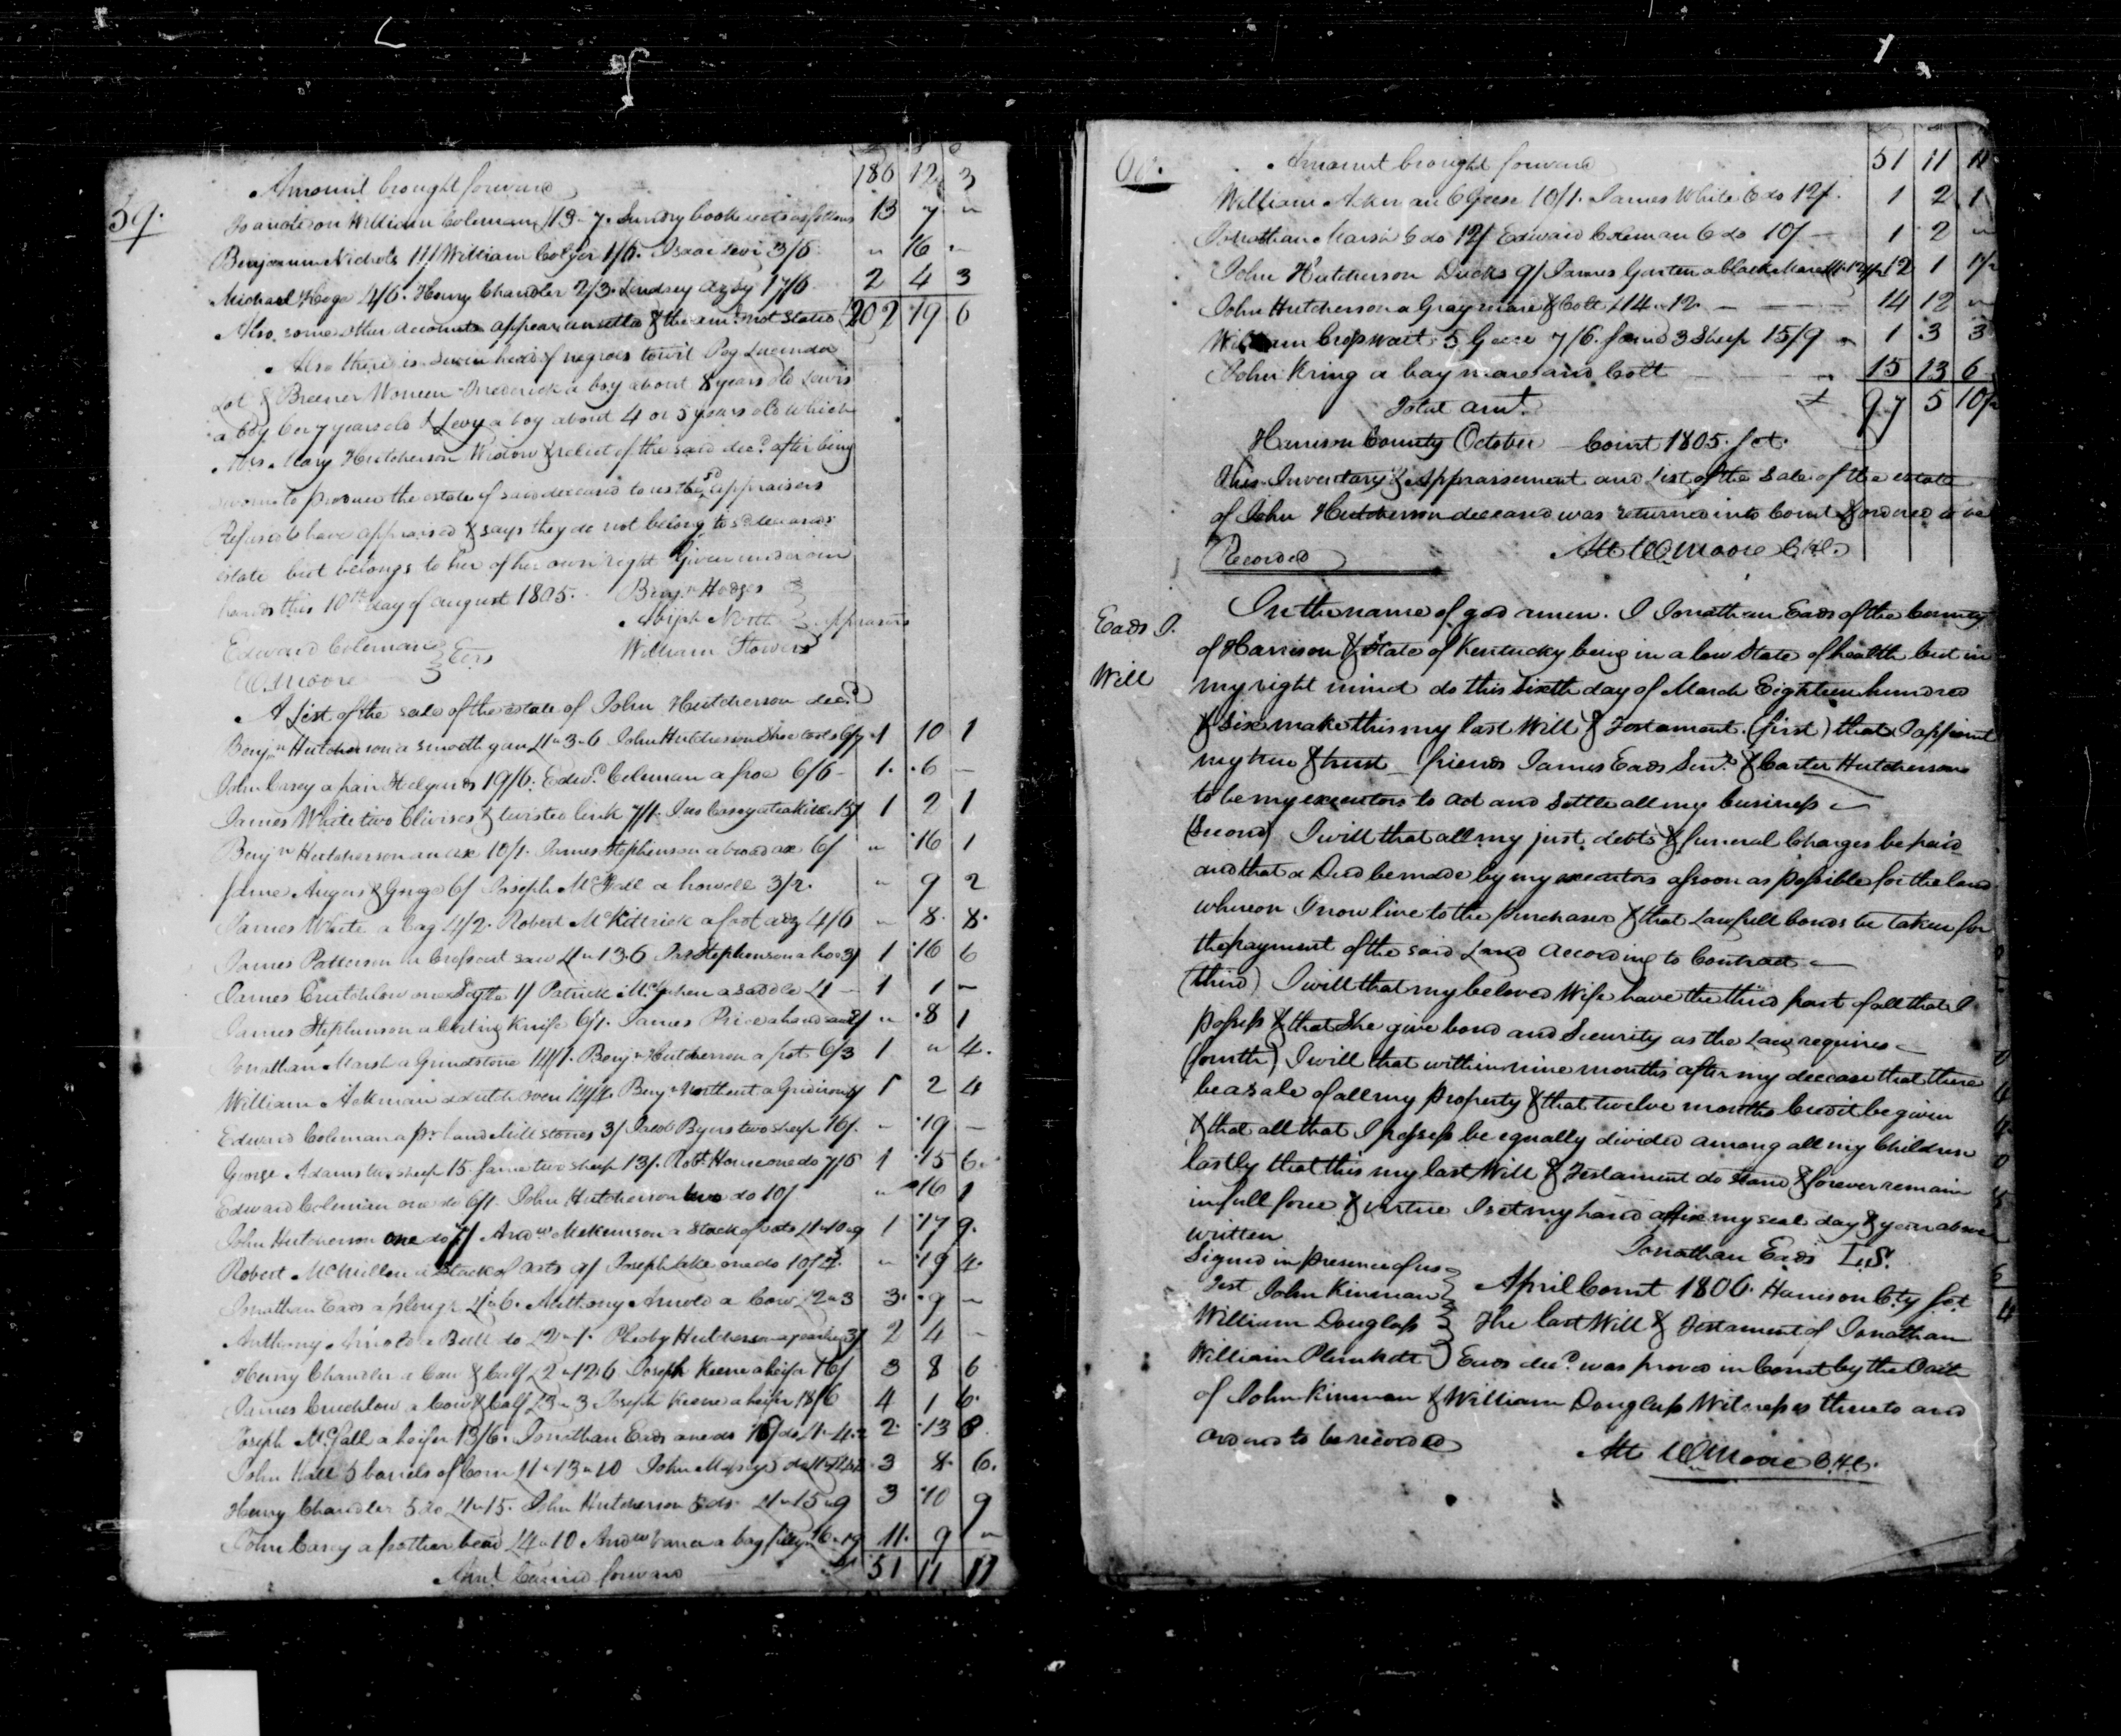 59.
£ s d
Amount brought forward 186 12 3
To a note on William Coleman £13 " 7. Sundry book accts as follows 13 7 "
Benjamin Nichols 11/ William Colyer 1/6. Isaac Levi 3/6 " 16 "
Michael Hoge 4/6. Henry Chandler 2/3. Lindsey 17/6 2 4 3
Also some other accounts appear unsettled & the amt. not stated 202 19 6
Also there is Seven head of negroes towit Peg Lucinda
Lot & Breener Women Frederick a boy about 8 years old Lewis
a boy 6 or 7 years old & Levy a boy about 4 or 5 years old which
Mrs. Mary Hutcherson Widow & relict of the said decd. after being
sworn to produce the estate of said deceased to us the sd. appraisers
Refuses to have appraised & says they do not belong to sd. deceaseds
estate but belongs to her of her own right Given under our
hands this 10th day of august 1805. Benjn. Hodges
Abijah North } appraisers
Edward Coleman } Exrs William Flowers
W. Moore
A List of the sale of the estate of John Hutcherson decd.
Benjn. Hutcherson a smooth gun £1 " 3 - 6 John Hutcherson Shoe tools 6/7 1 10 1
John Casey a pair Stilyards 19/6. Edwd. Coleman a froe 6/6 - 1. 6 -
James White two Clivises & twisted link 7/1. Jno Casey a tea kittle 15/ 1 2 1
Benjn Hutcherson an axe 10/1. James Stephenson a broad axe 6/ " 16 1
same Augers & Gouge 6/ Joseph McFall a howell 3/2. " 9 2
James White a bag 4/2. Robert McKittrick a foot adz 4/6 " 8. 8.
James Patterson a Crosscut saw £1 " 13.6 Jas Stephenson a hoe 3/ 1 16 6
James Crutchlow one Sythe 1/ Patrick a saddle £1 - 1 1 "
James Stephenson a Cuting Knife 6/1. James Price a hand 2/ " 8 1
Jonathan Marsh a Grindstone 14/1. Benjn Hutcherson a pot 6/3 1 " 4.
William Ackman a dutch oven 14/4. Benjn Northcut a Gridiron 8/ 1 2 4
Edward Coleman a pr. hand Mill stones 3/ Jacob Byers two sheep 16/. " 19 -
George Adams two sheep 15. same two sheep 13/. Robt. House one do 7/6 1 15 6.
Edward Coleman one do 6/1. John Hutcherson two do 10/ " 16 1
John Hutcherson one do 7/ Andw. McKemson a Stack of oats £1 " 10 " 9 1 17 9.
Robert McMillen a Stack of oats 9/ Joseph Lake one do 10/4. " 19 4.
Jonathan Eads a plough £1 " 6. Anthony Arnold a Cow £2 " 3 3. 9 "
Anthony Arnold a Bull do £2 " 1. Pheby Hutcherson 3/ 2 4 -
Henry Chandler a Cow & Calf £2 " 12 " 6 Joseph Keene a heifer 16/ 3 8 6
James Cruchlow a Cow & Calf £3 " 3 Joseph Keene a heifer 18/6 4 1 6.
Joseph McFall a heifer 13/6. Jonathan Eads one do 16/ do £1 - 4.2 2. 13 8.
John Hall 5 barrels of Corn £1 " 13 " 10 John 3 8. 6.
Henry Chandler 5 do £1 " 15. John Hutcherson 5 do £1 " 15 " 9 3 10 9
John Casey a feather bead £4 " 10 Andw a bay filly £6 " 19 11. 9 "
Amt. Carried forward £ 51 11 11
60.
Amount brought forward 51 11 11
William Ackman 6 Geese 10/1. James White 6 do 12/. 1 2 1
Jonathan Marsh 6 do 12/ Edward Coleman 6 do 10/ - 1 2 "
John Hutcherson Ducks 9/ James Garten a black Mare 12 1 1/2
John Hutcherson a Gray mare & Colt £14 " 12. 14 12 "
William Cropswait 5 Geese 7/6. same 3 Sheep 15/9 " 1 3 3
John Kring a bay mare and Colt " 15 13 6
Total amt. £ 97 5 10 1/2
Harrison County October Court 1805. Sct.
This Inventary & Appraisement and List of the Sale of the estate
of John Hutcherson deceased was returned into Court & ordered to be
Recorded Att W Moore C.H.C.
Eads J.
Will
In the name of god amen. I Jonathan Eads of the County
of Harrison & State of Kentucky being in a low State of health but in
my right mind do this Sixth day of March Eighteen hundred
& Six make this my last Will & Testament. (first) that I appoint
my true & trust friends James Eads Senr. & Carter Hutcherson
to be my executors to act and Settle all my business -
(Second) I will that all my just debts & funeral Charges be paid
and that a Deed be made by my executors as soon as possible for the land
whereon I now live to the purchaser & that Lawfull bonds be taken for
the payment of the said Land according to Contract -
(third) I will that my beloved Wife have the third part of all that I
possess & that She give bond and Security as the Law requires -
(fourth) I will that within nine months after my decease that there
be a sale of all my property & that twelve months Credit be given
& that all that I possess be equally divided among all my Children
lastly that this my last Will & Testament do stand & forever remain
in full force & virtue I set my hand affix my seal day & year above
written
Jonathan Eads L.S.
Signed in presence of us
Test John Kinman } April Court 1806. Harrison Cty Sct
William Douglass } The last Will & Testament of Jonathan
William Plunkett } Eads decd. was proved in Court by the Oath
of John Kinman & William Douglass Witnesses thereto and
ordered to be recorded
Att W Moore C.H.C.